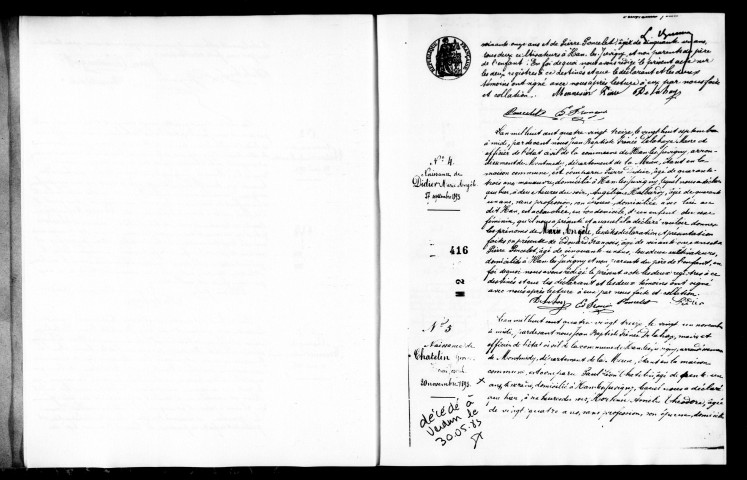 soixante onze ans et de Pierre Poncelet, âgé de cinquante un ans,
tous deux cultivateurs à Han-les-Juvigny, et non parents du père
de l'enfant. En foi de quoi nous avons rédigé le présent acte sur
les deux registres à ce destinés et que le déclarant et les deux
témoins ont signé avec nous après lecture à eux par nous faite
et collation. Pierre Delahaye
Poncelet E. François
N° 4
Naissance de
Didier Marie Angèle
27 septembre 1893
L'an mil huit cent quatre-vingt treize, le vingt huit septembre
à midi, par devant nous Jean Baptiste Irénée Delahaye Maire et
officier de l'état civil de la commune de Han les Juvigny, arron-
dissement de Montmédy, département de la Meuse, étant en la
maison commune, est comparu Pierre Didier, âgé de quarante
trois ans manœuvre, domicilié à Han les Juvigny, lequel nous a déclaré
qu'hier, à deux heures du soir, Angéline, âgée de quarante
un ans, sans profession, son épouse, domiciliée avec lui au
dit Han, est accouchée, en son domicile, d'un enfant du sexe
féminin, qu'il nous présente et auquel il a déclaré vouloir donner
les prénoms de Marie Angèle, lesdites déclaration et présentation
faites en présence de Edouard François, âgé de soixante onze ans et de
Pierre Poncelet, âgé de cinquante un ans, tous deux cultivateurs,
domiciliés à Han les Juvigny et non parents du père de l'enfant, en
foi de quoi nous avons rédigé le présent acte sur les deux registres à ce
destinés et que les déclarant et les deux témoins ont signé
avec nous après lecture à eux par nous faite et collation.
Delahaye E. François Poncelet Didier
416
N 2
N° 5
Naissance de
Chatelin
20 novembre 1893
L'an mil huit cent quatre-vingt treize le vingt un novembre
à midi, par devant nous Jean Baptiste Irénée Delahaye, maire et
officier de l'état civil de la commune de Han les Juvigny, arrondissement
de Montmédy, département de la Meuse, étant en la maison
commune, est comparu Paul Léon Chatelin, âgé de trente un
ans, domicilié à Han les Juvigny, lequel nous a déclaré
qu'hier, à heures du soir, Théodore, âgée
de vingt quatre ans, sans profession, son épouse, domiciliée
décédé à
Verdun le
30.05.83